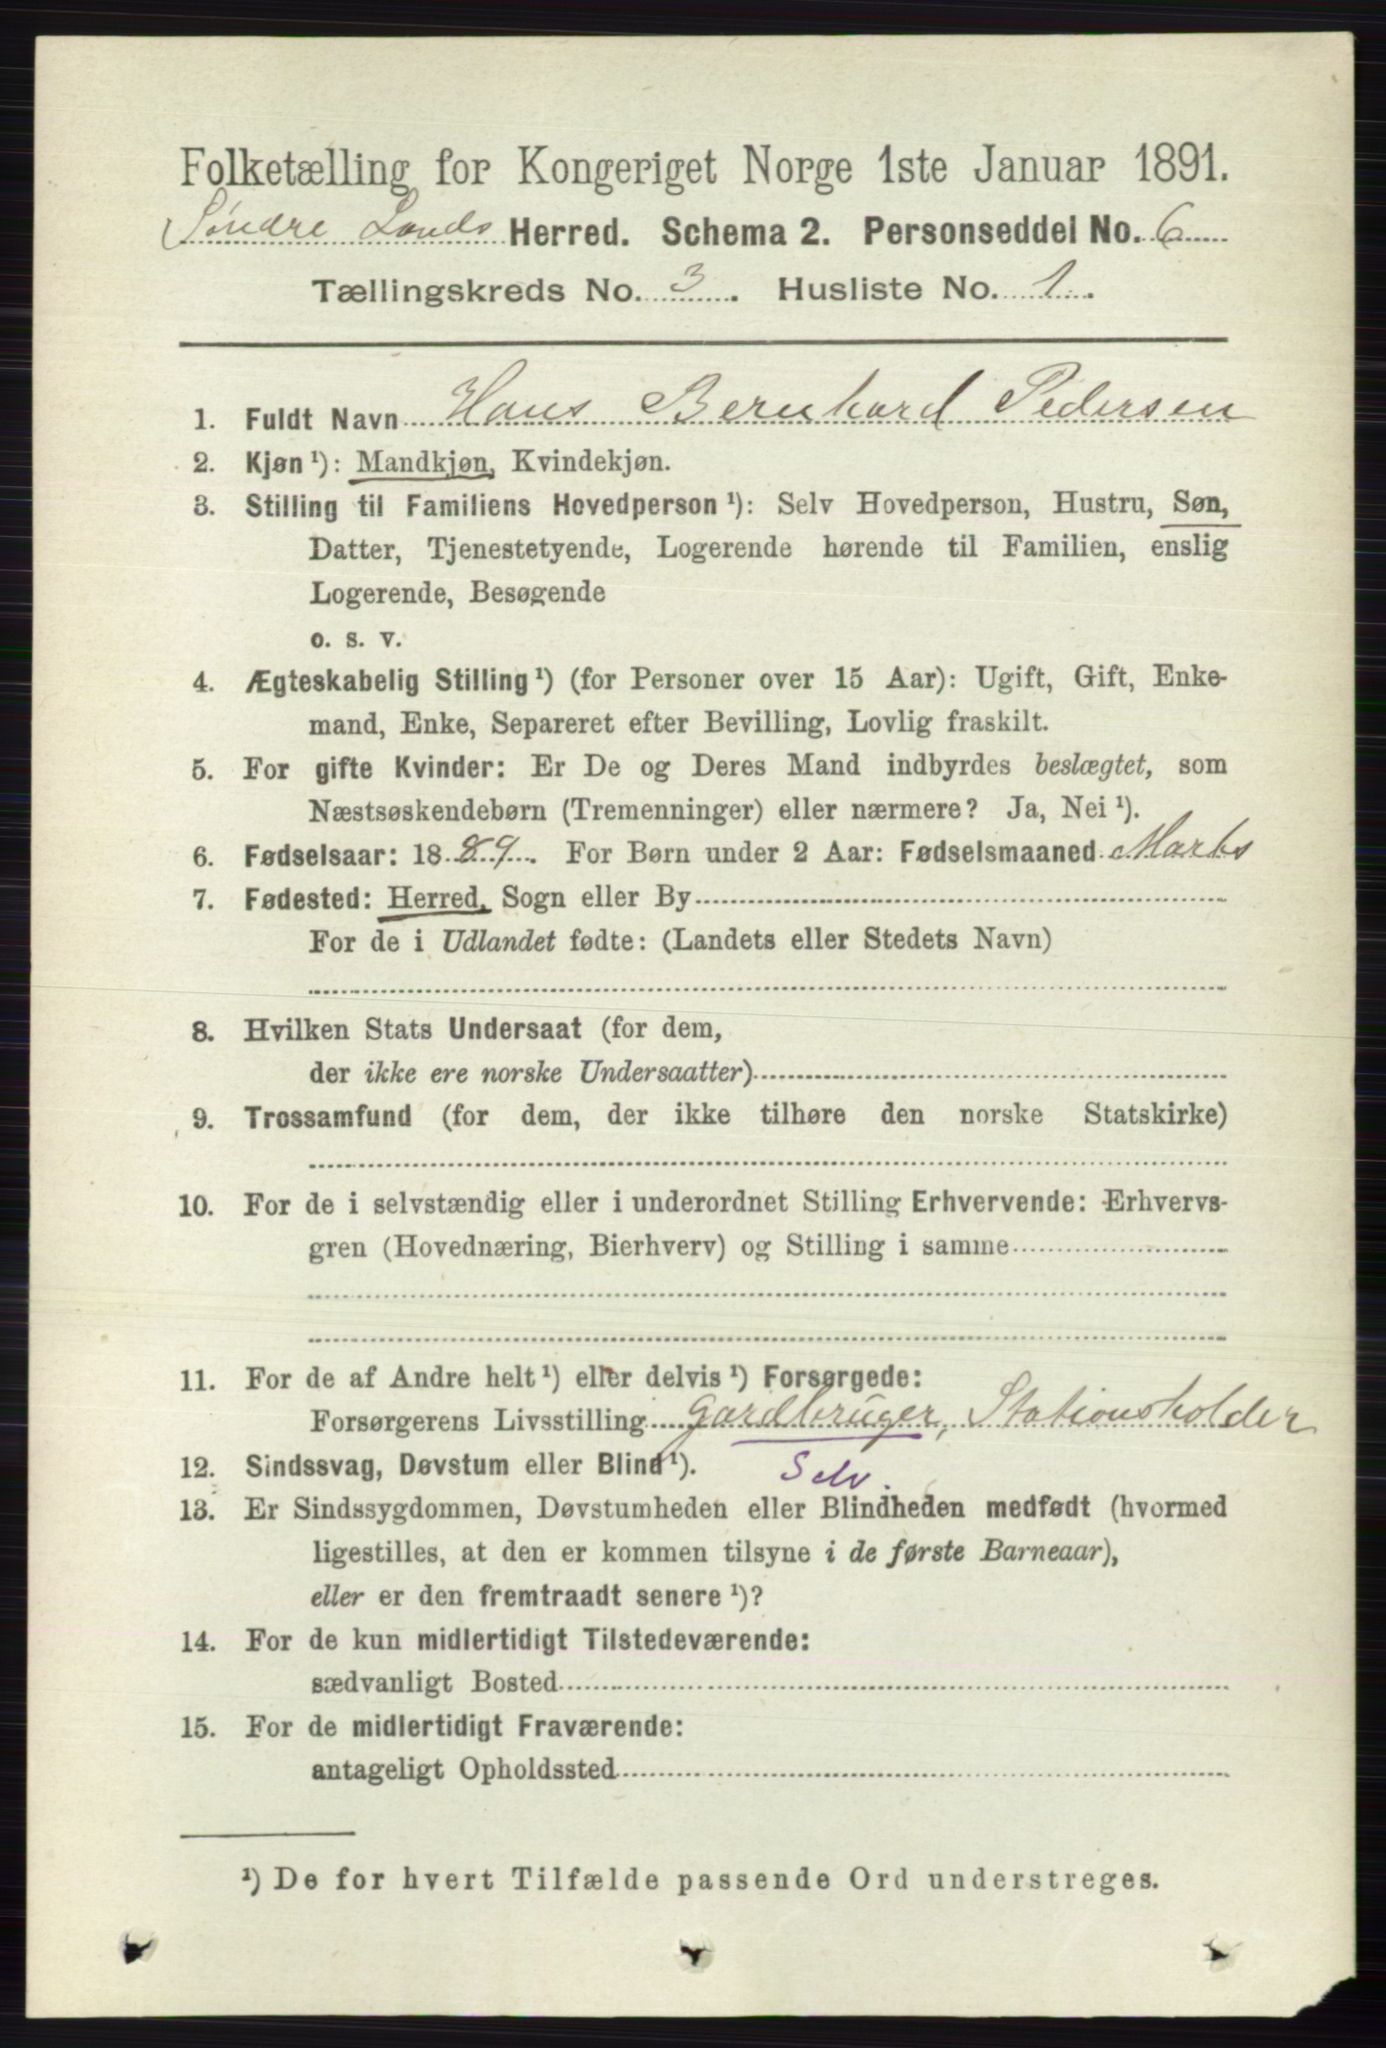 Folketælling for Kongeriget Norge 1ste Januar 1891.
Søndre Lands Herred. Schema 2. Personseddel No. 6
Tællingskreds No. 3. Husliste No. 1.
1. Fuldt Navn Hans Bernhard Pedersen
2. Kjøn ¹): Mandkjøn, Kvindekjøn.
3. Stilling til Familiens Hovedperson ¹): Selv Hovedperson, Hustru, Søn,
Datter, Tjenestetyende, Logerende hørende til Familien, enslig
Logerende, Besøgende
o. s. v.
4. Ægteskabelig Stilling ¹) (for Personer over 15 Aar): Ugift, Gift, Enke-
mand, Enke, Separeret efter Bevilling, Lovlig fraskilt.
5. For gifte Kvinder: Er De og Deres Mand indbyrdes beslægtet, som
Næstsøskendebørn (Tremenninger) eller nærmere? Ja, Nei ¹).
6. Fødselsaar: 1889. For Børn under 2 Aar: Fødselsmaaned Marts
7. Fødested: Herred, Sogn eller By
For de i Udlandet fødte: (Landets eller Stedets Navn)
8. Hvilken Stats Undersaat (for dem,
der ikke ere norske Undersaatter)
9. Trossamfund (for dem, der ikke tilhøre den norske Statskirke)
10. For de i selvstændig eller i underordnet Stilling Erhvervende: Erhvervs-
gren (Hovednæring, Bierhverv) og Stilling i samme
11. For de af Andre helt ¹) eller delvis ¹) Forsørgede:
Forsørgerens Livsstilling gardbruger, Stationsholder
12. Sindssvag, Døvstum eller Blind ¹). Selv.
13. Er Sindssygdommen, Døvstumheden eller Blindheden medfødt (hvormed
ligestilles, at den er kommen tilsyne i de første Barneaar),
eller er den fremtraadt senere ¹)?
14. For de kun midlertidigt Tilstedeværende:
sædvanligt Bosted
15. For de midlertidigt Fraværende:
antageligt Opholdssted
¹) De for hvert Tilfælde passende Ord understreges.